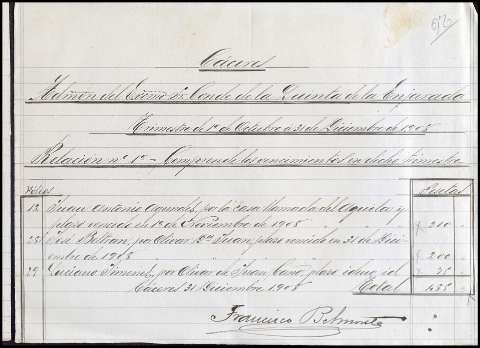 Cáceres
Admón del Excmo Sr. Conde de la Quinta de la Enjarada
Trimestre de 1º de Octubre a 31 de Diciembre de 1908
Relación nº 1º - Comprende los vencimientos en dicho trimestre
Pesetas
12 Juan Antonio por la casa llamada del y
plazo vencido en 1º de Noviembre de 1908 " 210 "
25 José Beltran, por Olivar Dn Juan, plazo vencido en 31 de Dici-
embre de 1908 " 200 "
29 Luciano Jimenez, por Olivar de Juan Caño, plazo idem, id. " 25 "
Cáceres 31 Diciembre 1908 Total 435 "
Francisco Belmonte